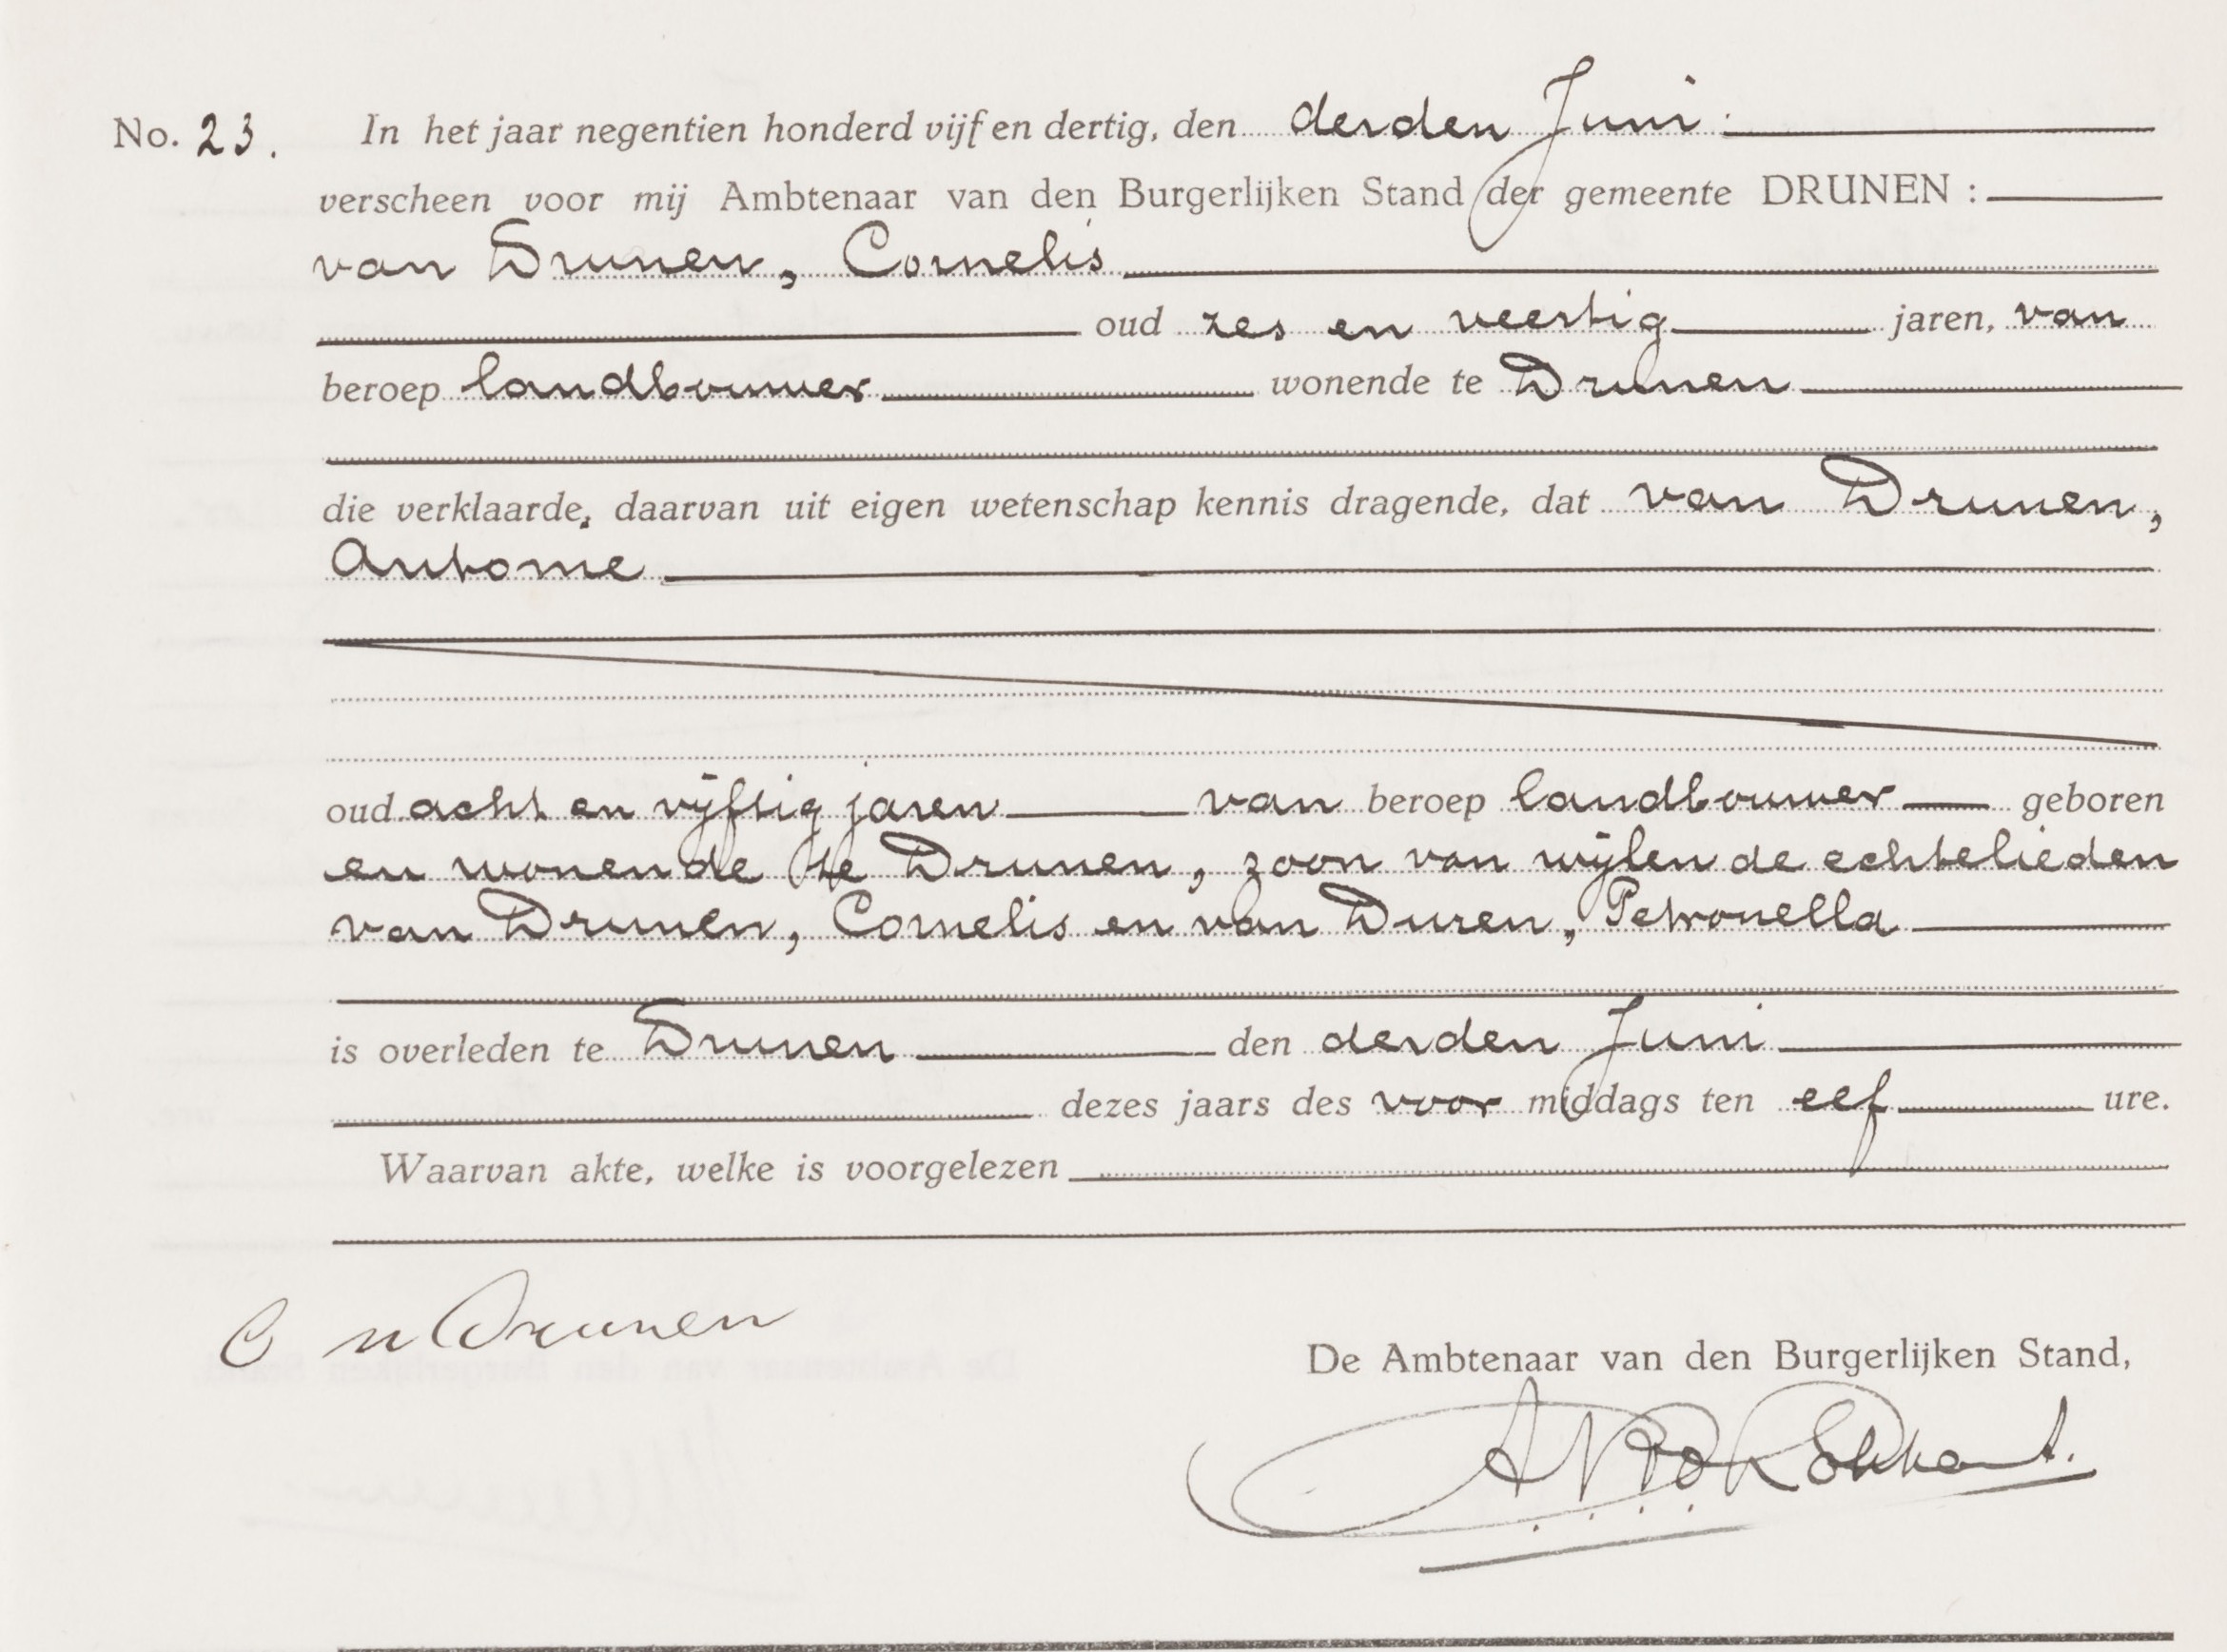 No. 23. In het jaar negentien honderd vijf en dertig, den derden Juni
verscheen voor mij Ambtenaar van den Burgerlijken Stand der gemeente DRUNEN :
van Drunen, Cornelis
oud zes en veertig jaren, van
beroep landbouwer wonende te Drunen
die verklaarde, daarvan uit eigen wetenschap kennis dragende, dat van Drunen,
Antonie
oud acht en vijftig jaren van beroep landbouwer geboren
en wonende te Drunen, zoon van wijlen de echtelieden
van Drunen, Cornelis en van Duren, Petronella
is overleden te Drunen den derden Juni
dezes jaars des voor middags ten elf ure.
Waarvan akte, welke is voorgelezen
C v Drunen
De Ambtenaar van den Burgerlijken Stand,